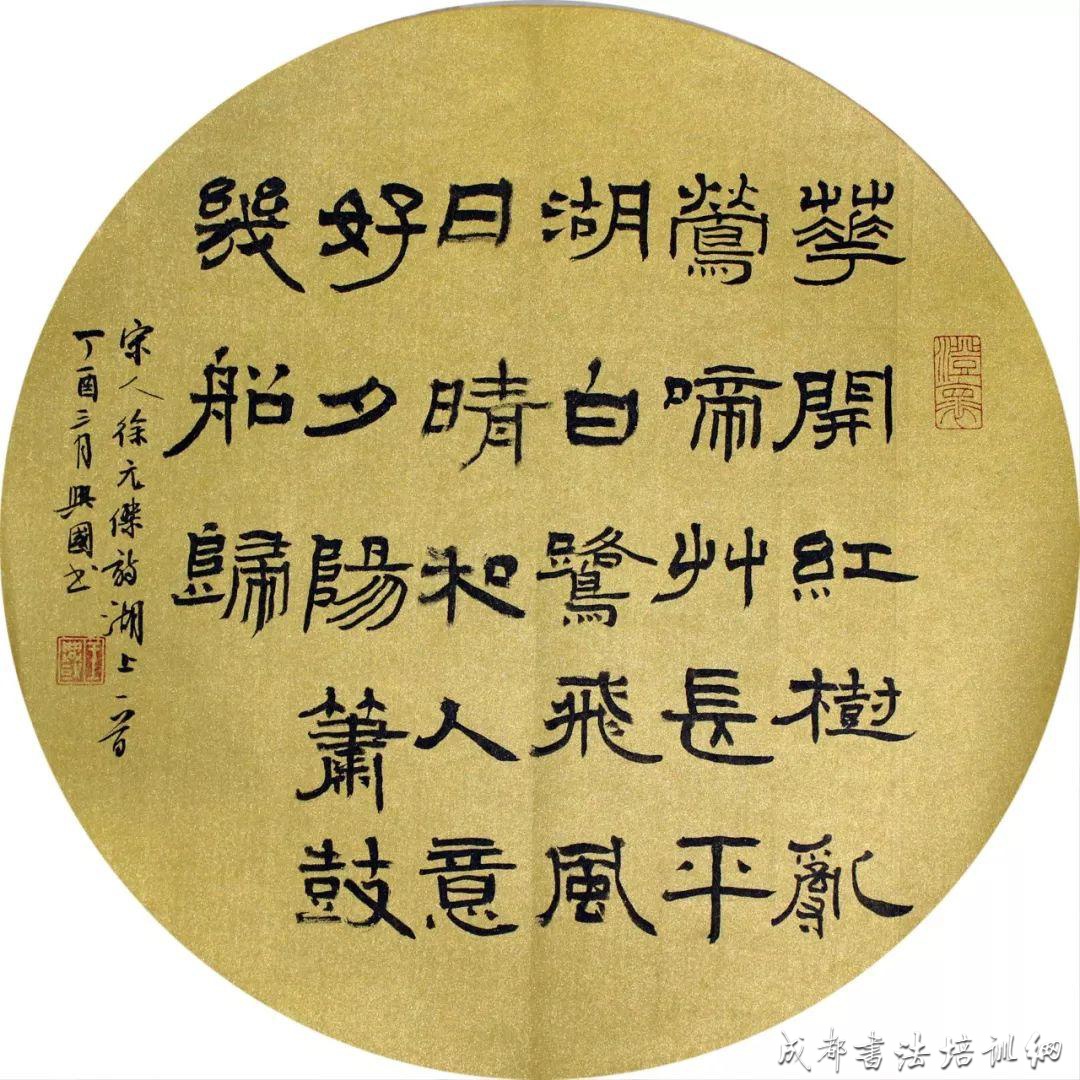 華開紅樹亂
鶯啼艸長平
湖白鷺飛風
日晴和人意
好夕陽簫鼓
幾船歸
宋人徐元傑詩湖上一首
丁酉三月興國書
澄懷
成都書法培训網